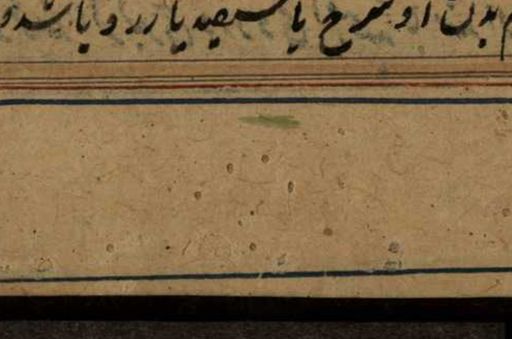 بدن او سرخ یا سفید یا زرد و یا شد و